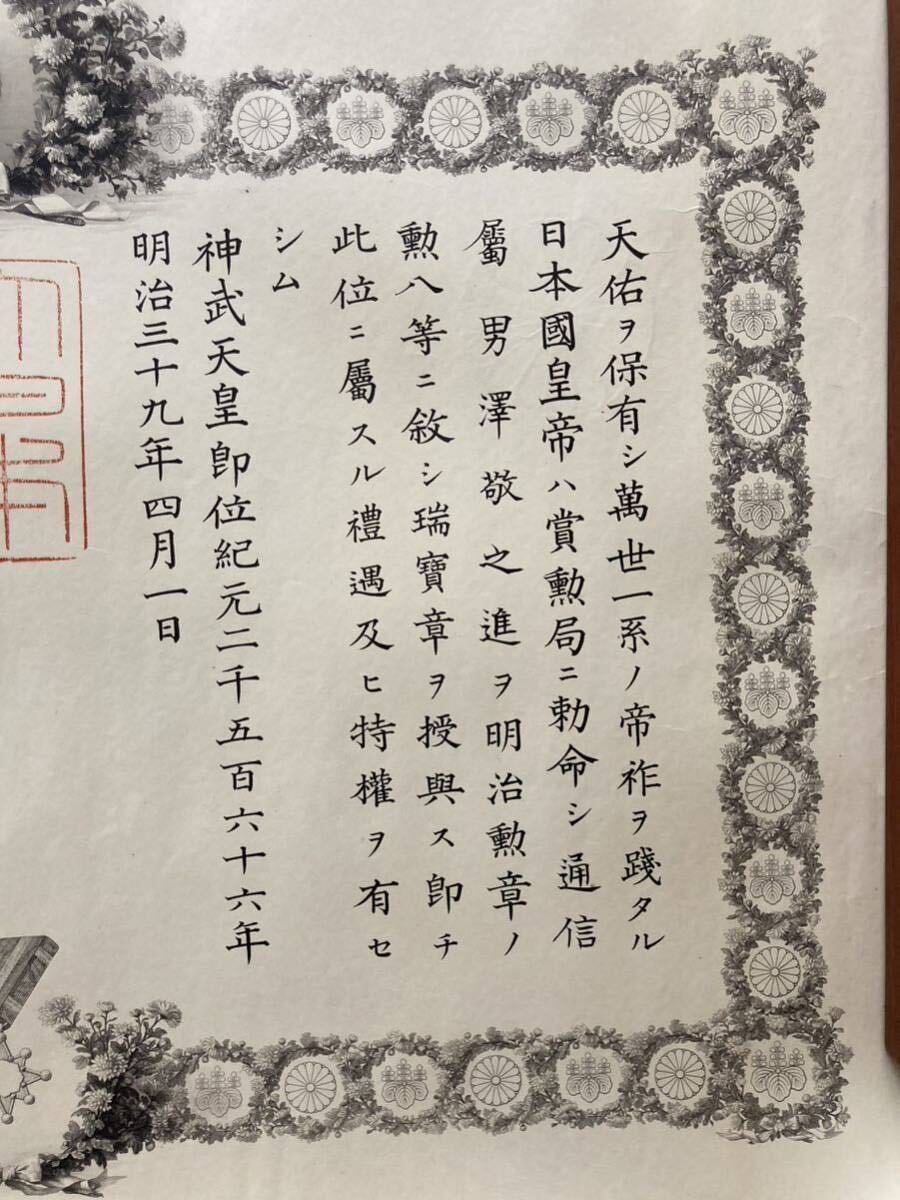 天佑ヲ保有シ萬世一系ノ帝祚ヲ踐タル
日本國皇帝ハ賞勲局ニ勅命シ通信
屬男澤敬之進ヲ明治勲章ノ
勲八等ニ敘シ瑞寶章ヲ授與ス卽チ
此位ニ屬スル禮遇及ヒ特權ヲ有セ
シム
神武天皇卽位紀元二千五百六十六年
明治三十九年四月一日